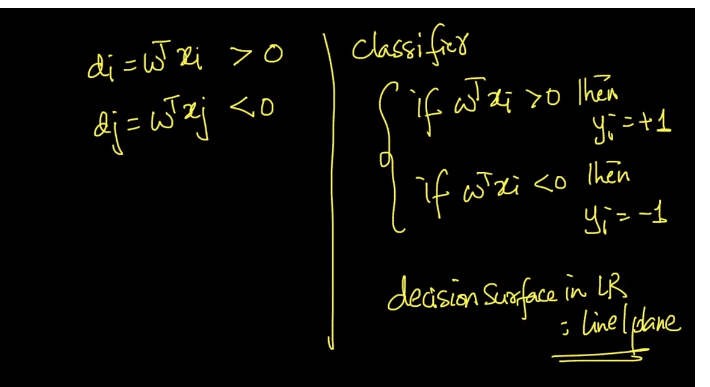 di = wᵀxi > 0
dj = wᵀxj < 0
classifier
if wᵀxi > 0 then
yi = +1
if wᵀxi < 0 then
yi = -1
decision surface in LR
: line/plane